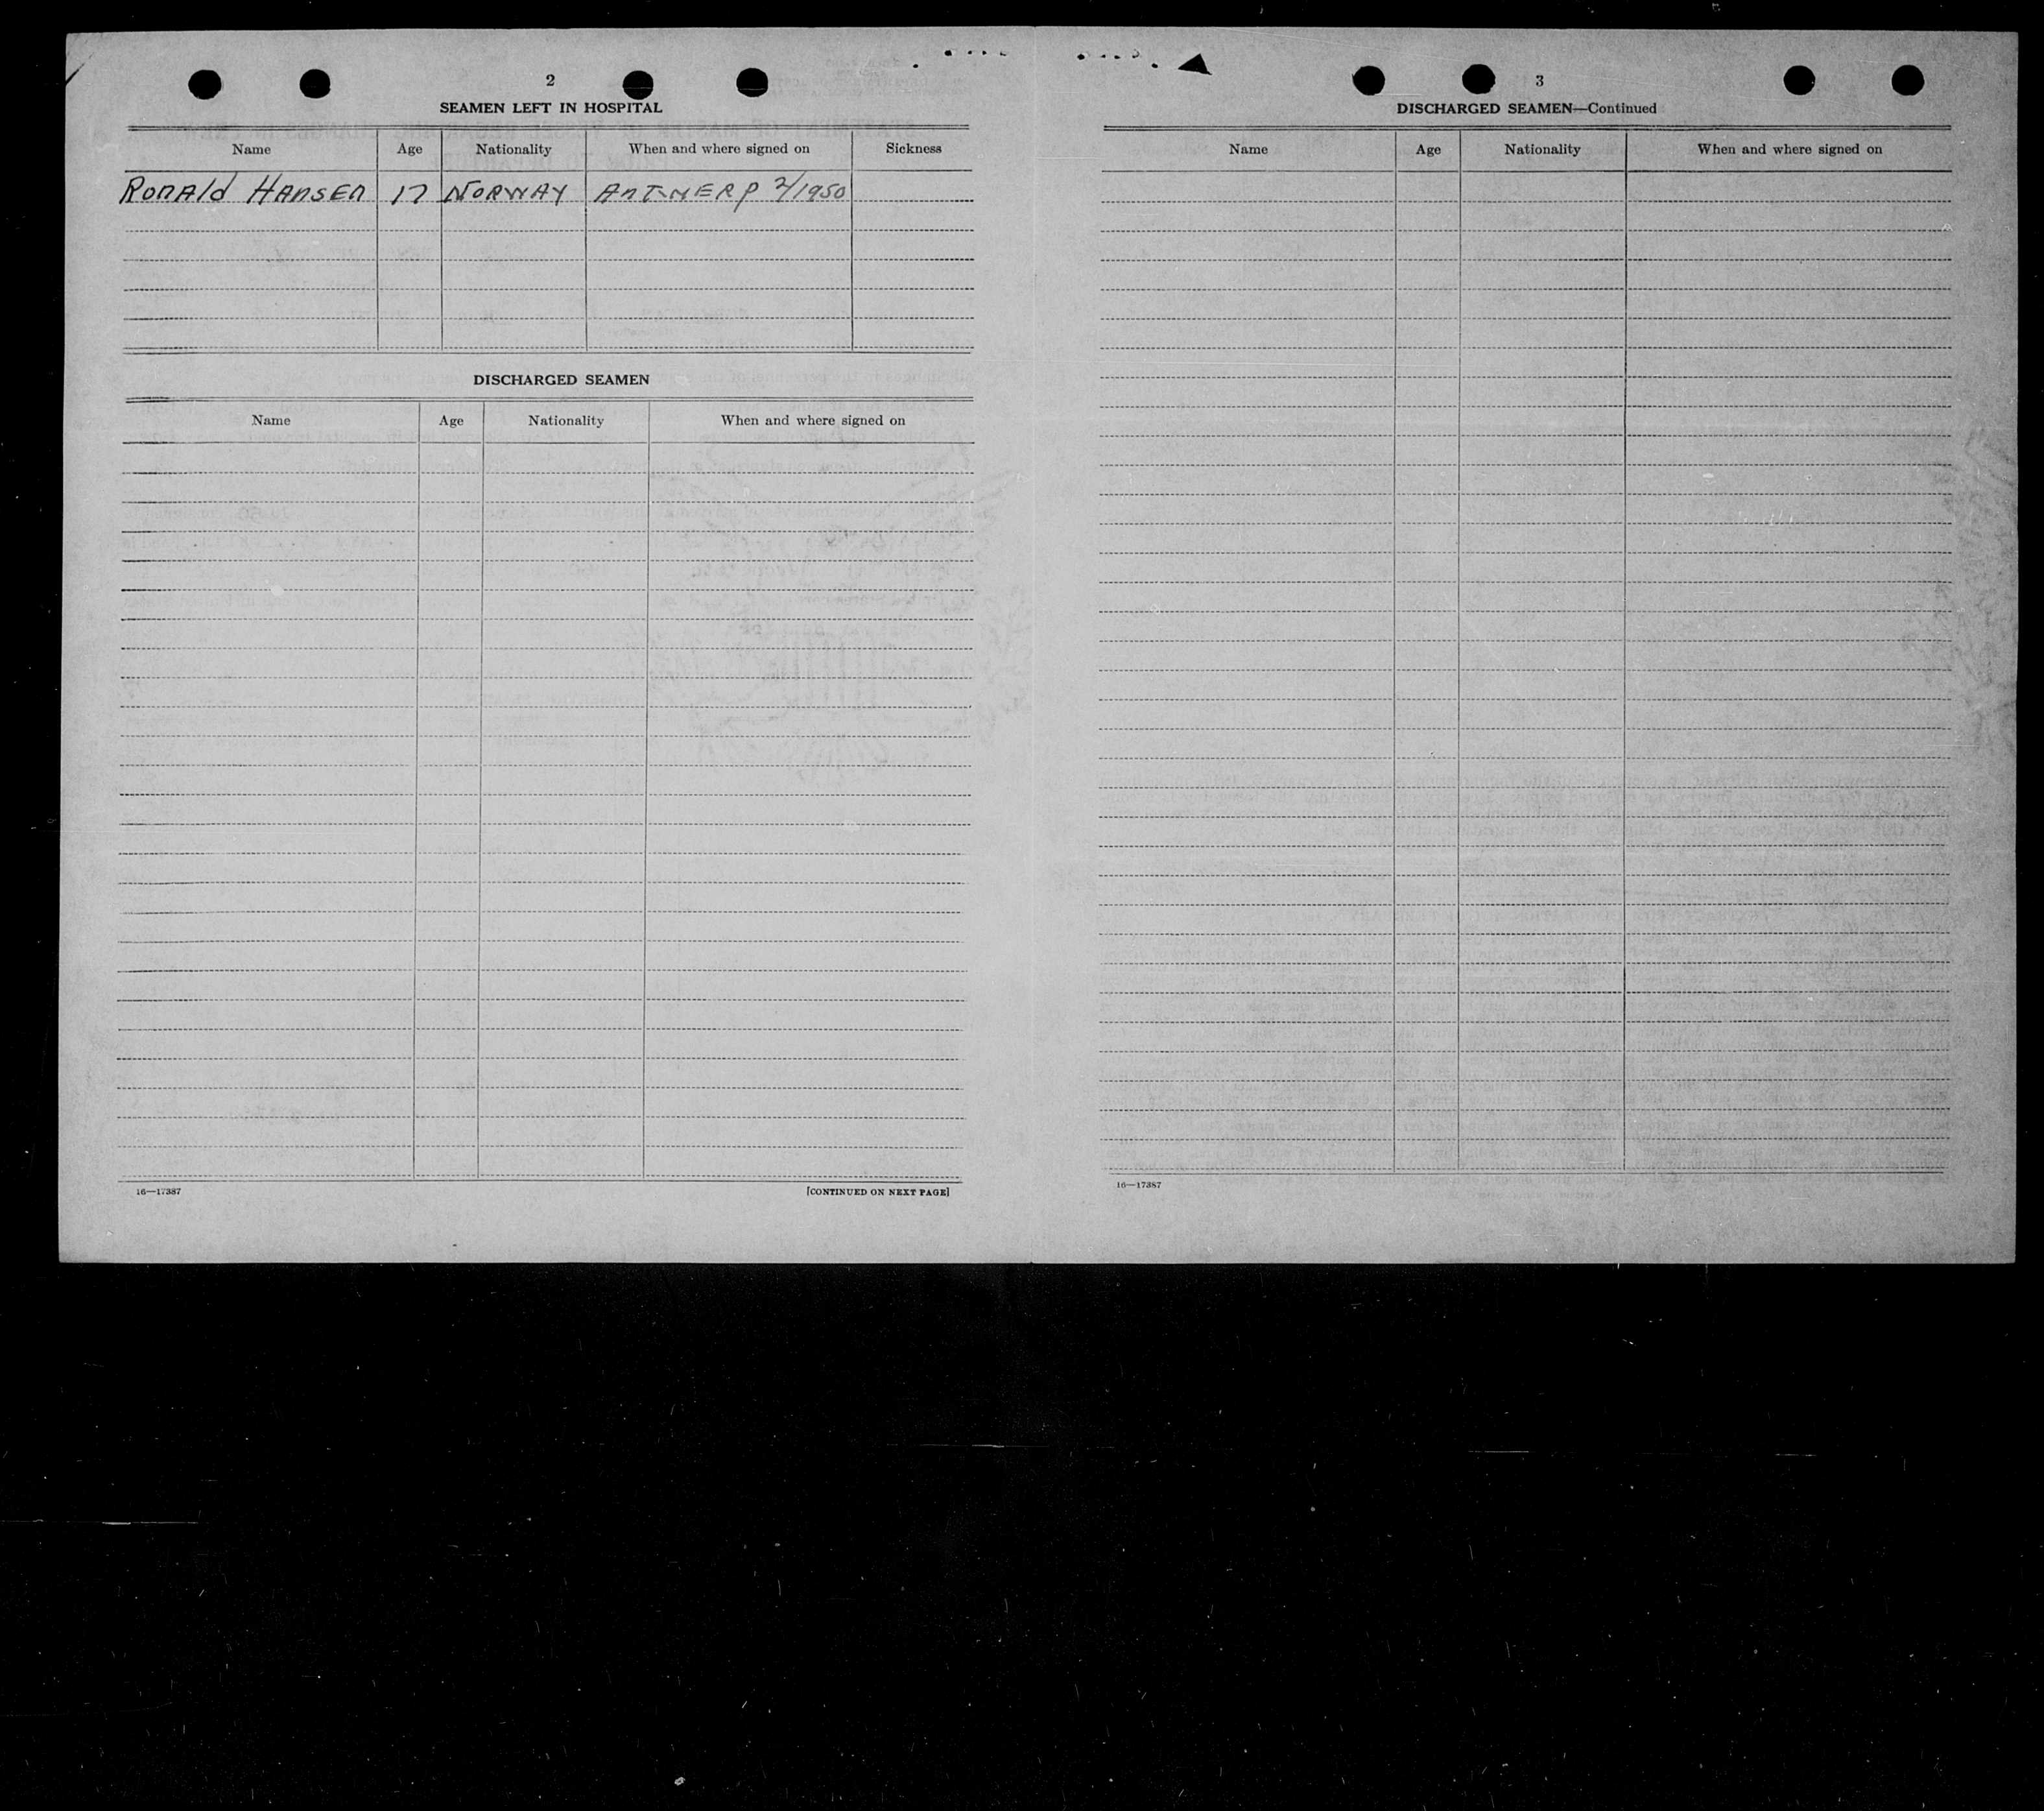 2
SEAMEN LEFT IN HOSPITAL
Name Age Nationality When and where signed on Sickness
Ronald Hansen 17 Norway Antwerp 2/1950
DISCHARGED SEAMEN
Name Age Nationality When and where signed on
16—17387 [CONTINUED ON NEXT PAGE]
3
DISCHARGED SEAMEN—Continued
Name Age Nationality When and where signed on
16—17387